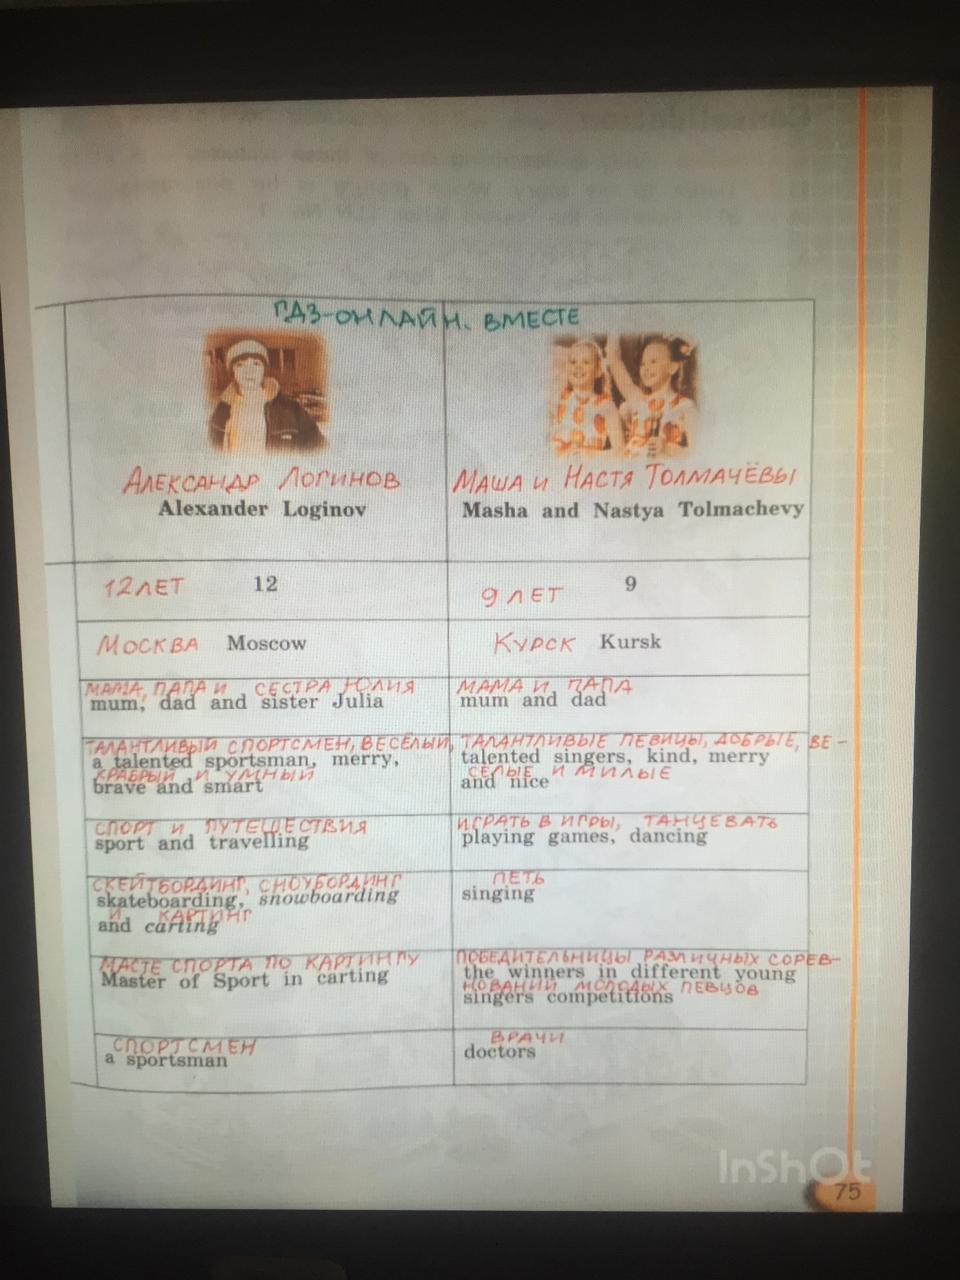 ГДЗ-ОНЛАЙН. ВМЕСТЕ
АЛЕКСАНДР ЛОГИНОВ
Alexander Loginov
МАША И НАСТЯ ТОЛМАЧЁВЫ
Masha and Nastya Tolmachevy
12 ЛЕТ 12
9 ЛЕТ 9
МОСКВА Moscow
КУРСК Kursk
МАМА, ПАПА И СЕСТРА ЮЛИЯ
mum, dad and sister Julia
МАМА И ПАПА
mum and dad
ТАЛАНТЛИВЫЙ СПОРТСМЕН, ВЕСЁЛЫЙ,
a talented sportsman, merry,
КРАБРЫЙ И УМНЫЙ
brave and smart
ТАЛАНТЛИВЫЕ ПЕВИЦЫ, ДОБРЫЕ, ВЕ-
talented singers, kind, merry
СЕЛЫЕ И МИЛЫЕ
and nice
СПОРТ И ПУТЕШЕСТВИЯ
sport and travelling
ИГРАТЬ В ИГРЫ, ТАНЦЕВАТЬ
playing games, dancing
СКЕЙТБОРДИНГ, СНОУБОРДИНГ
skateboarding, snowboarding
И КАРТИНГ
and carting
ПЕТЬ
singing
МАСТЕ СПОРТА ПО КАРТИНГУ
Master of Sport in carting
ПОБЕДИТЕЛЬНИЦЫ РАЗЛИЧНЫХ СОРЕВ-
the winners in different young
НОВАНИЙ МОЛОДЫХ ПЕВЦОВ
singers competitions
СПОРТСМЕН
a sportsman
ВРАЧИ
doctors
InShOt
75